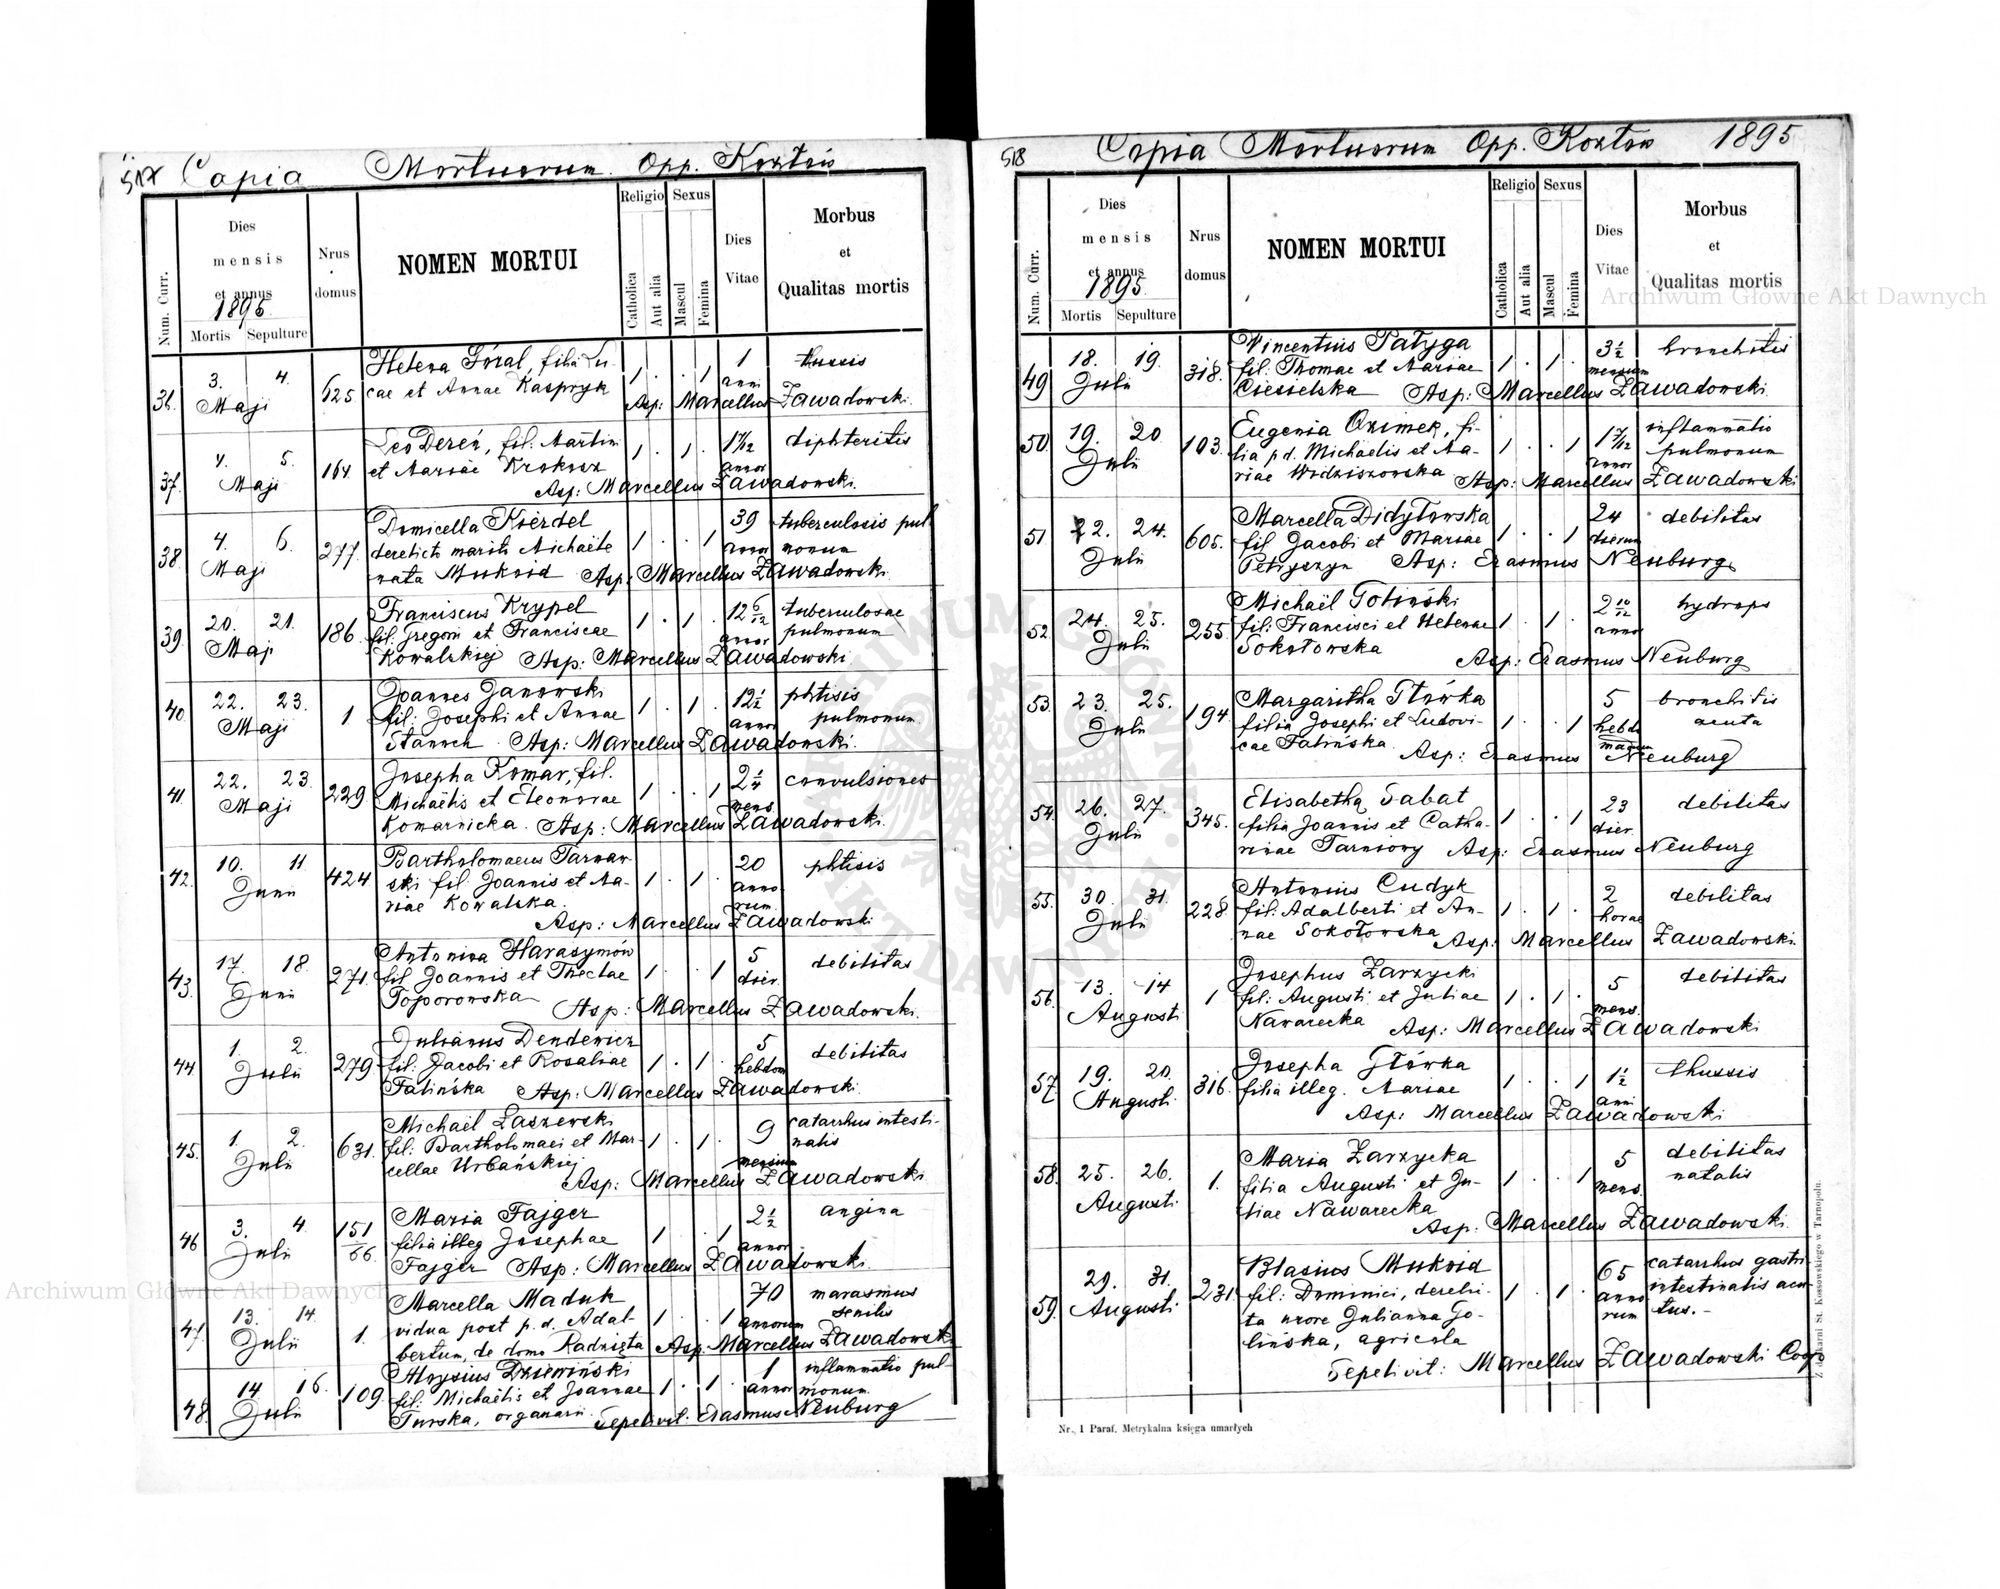 517 Copia Mortuorum Opp. Kozłów
Num. Curr.
Dies
mensis
et annus
1895
Mortis Sepulture
Nrus
domus
NOMEN MORTUI
Religio
Catholica
Aut alia
Sexus
Mascul
Femina
Dies
Vitae
Morbus
et
Qualitas mortis
36. 3. 4. Maji 625. Helena Góral, filia Lu-
cae et Annae Kaspryk 1 . . 1 1 anni tussis
Asp: Marcellus Zawadowski.
37. 4. 5. Maji 164. Leo Dereń, fil: Martini
et Mariae Krokosz 1 . 1 . annor diphteritis
Asp: Marcellus Zawadowski.
38. 4. 6. Maji 277. Domicella Kierdel
derelicti mariti Michaële
nata Mukoid 1 . . 1 39 annor tuberculosis pul
monum
Asp: Marcellus Zawadowski
39. 20. 21. Maji 186. Franciscus Krypel
fil: Gregorii et Franciscae
Kowalskiej 1 . 1 . 12 6/12 annor tuberculosae
pulmonum
Asp: Marcellus Zawadowski
40. 22. 23. Maji 1 Joannes Janowski
fil: Josephi et Annae
1 . 1 . 12½ annor phtisis
pulmonum
Asp: Marcellus Zawadowski.
41. 22. 23. Maji 229 Josepha Komar, fil.
Michaëlis et Eleonorae
Komarnicka. 1 . . 1 2 mens convulsiones
Asp: Marcellus Zawadowski.
42. 10. 11 Junii 424 Bartholomaeus Tarnaw
ski fil: Joannis et Ma-
riae Kowalska. 1 . 1 . 20 anno
rum phtisis
Asp: Marcellus Zawadowski
43. 17. 18. Junii 271. Antonina Harasymów
fil Joannis et Theclae
Toporowska 1 . . 1 5 dier. debilitas
Asp: Marcellus Zawadowski.
44. 1. 2. Julii 279 Julianus Dendewicz
fil: Jacobi et Rosaliae
Falińska 1 . 1 . 5 hebdom debilitas
Asp: Marcellus Zawadowski.
45. 1. 2. Julii 631. Michael Łaszewski
fil: Bartholomaei et Mar-
cellae Urbańskiej 1 . 1 . 9 mensium catarrhus intesti-
nalis
Asp: Marcellus Zawadowski
46 3. 4. Julii 151/66 Maria Fajger
filia illeg Josephae
Fajger 1 . . 1 2½ annor angina
Asp: Marcellus Zawadowski.
47. 13. 14. Julii 1. Marcella Maduk
vidua post p. d. Adal-
bertum, de domo Radzięta 1 . . 1 70 annorum marasmus
senilis
Asp. Marcellus Zawadowski
48. 14. 16. Julii 109. Aloysius Dziewiński
fil: Michaëlis et Joannae
Turska, organarii. 1 . 1 . 1 annor inflammatio pul-
monum.
Sepelivit: Erasmus Neuburg
518 Copia Mortuorum Opp. Kozłów 1895
Num. Curr.
Dies
mensis
et annus
1895.
Mortis Sepulture
Nrus
domus
NOMEN MORTUI
Religio
Catholica
Aut alia
Sexus
Mascul
Femina
Dies
Vitae
Morbus
et
Qualitas mortis
49 18. 19. Julii 318. Vincentius Patyga
fil: Thomae et Mariae
Ciesielska 1 . 1 . 3½ mensium bronchitis
Asp: Marcellus Zawadowski.
50. 19. 20. Julii 103. Eugenia Ozimek, fi-
lia p. d. Michaelis et Ma-
riae 1 . . 1 1 7/12 annor inflammatio
pulmonum
Asp: Marcellus Zawadowski
51. 22. 24. Julii 605. Marcella Didyłowska
fil Jacobi et Mariae
Petryszyn 1 . . 1 24 dierum debilitas
Asp: Erasmus Neuburg
52. 24. 25. Julii 255. Michaël Goliński
fil: Francisci et Helenae
Sokołowska 1 . 1 . 2 10/12 anno hydrops
Asp: Erasmus Neuburg
53. 23. 25. Julii 194. Margaritha Główka
filia Josephi et Ludovi-
cae Falińska 1 . . 1 5 hebdo
madum bronchitis
acuta
Asp: Erasmus Neuburg
54. 26. 27. Julii 345. Elisabetha Sabat
filia Joannis et Catha-
rinae Tarnowy 1 . . 1 23 dier. debilitas
Asp: Erasmus Neuburg
55. 30. 31. Julii 228. Antonius Cudyk
fil: Adalberti et An-
nae Sokołowska 1 . 1 . 2 horae debilitas
Asp: Marcellus Zawadowski.
56. 13. 14 Augusti 1 Josephus Zarzycki
fil: Augusti et Juliae
Nawarecka 1 . 1 . 5 mens. debilitas
Asp: Marcellus Zawadowski
57. 19. 20. Augusti. 316. Josepha Główka
filia illeg. Mariae 1 . . 1 1½ anni thussis
Asp: Marcellus Zawadowski
58. 25. 26. Augusti 1. Maria Zarzycka
filia Augusti et Ju-
liae Nawarecka 1 . . 1 5 mens. debilitas
natalis
Asp: Marcellus Zawadowski.
59. 29. 31. Augusti 231. Blasius Mukoid
fil: Dominici, dereli-
ta uxore Julianna Go-
lińska, agricola 1 . 1 . 65 anno
rum catarrhus gastri-
intestinalis acu
tus.-
Sepelivit: Marcellus Zawadowski Coop
Nr. 1 Paraf. Metrykalna księga umarłych
Z drukarni St. Kossowskiego w Tarnopolu.
Archiwum Główne Akt Dawnych
Archiwum Główne Akt Dawnych
ARCHIWUM GŁÓWNE AKT DAWNYCH